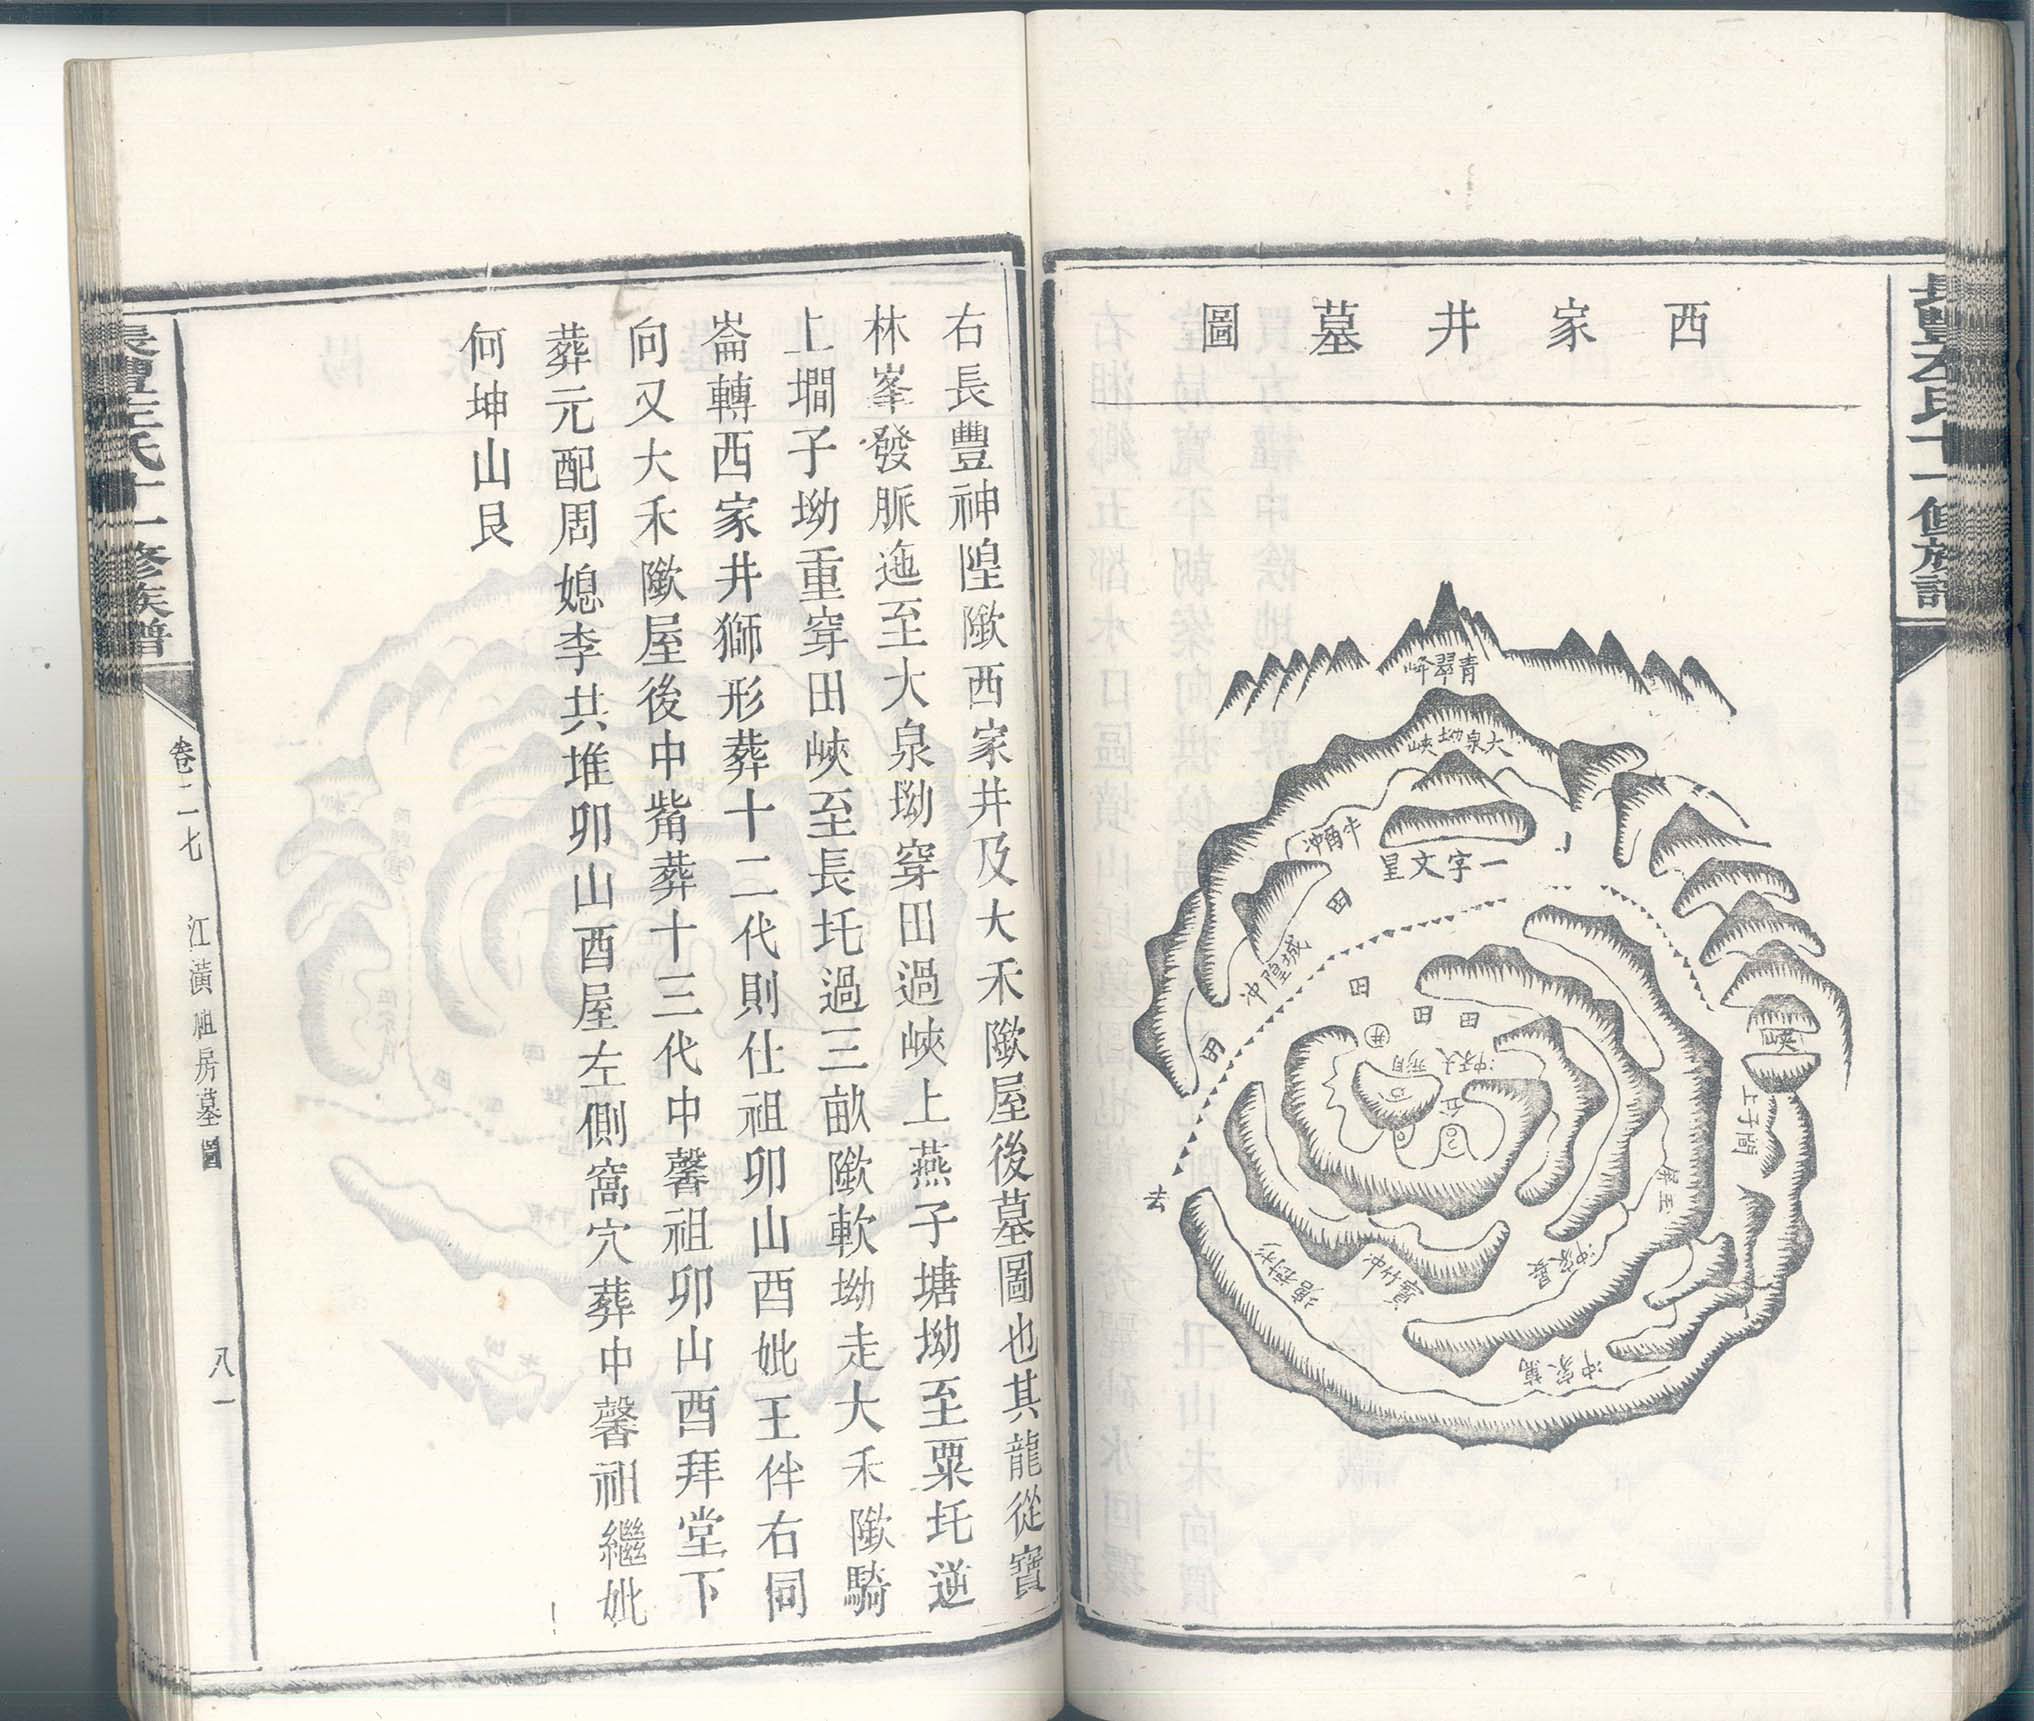 西家井墓圖
長豐左氏十一修族譜
青翠峰
大泉坳峽
一字文星
牛酉冲
田
城隍冲
田
田
田
田
井
大禾冲
峽
去
右長豐神隍隞西家井及大禾隞屋後墓圖也其龍從寶
林峯發脈迤至大泉坳穿田過峽上燕子塘坳至粟圫逆
上墹子坳重穿田峽至長圫過三畝隞軟坳走大禾隞騎
崙轉西家井獅形葬十二代則仕祖卯山酉妣王伴右同
向又大禾隞屋後中觜葬十三代中馨祖卯山酉拜堂下
葬元配周媳李共堆卯山酉屋左側窩穴葬中馨祖繼妣
何坤山艮
長豐左氏十一修族譜
卷二七
江潢祖房墓圖
八一